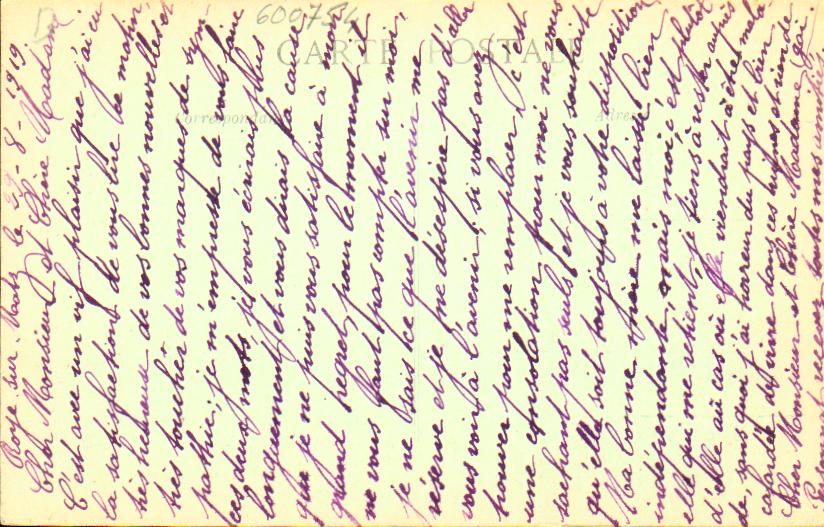 600754
CARTE POSTALE
Correspondance
Adresse
Roye sur Matz le 29-8-1919
Cher Monsieur et Chère Madame
C'est avec un vif plaisir que j'ai eu
la satisfaction de vous lire ce matin,
très heureuse de vos bonnes nouvelles et
très touchée de vos marques de sym-
pathie; je m'empresse de vous faire
ces deux mots, je vous écrirais plus
longuement et vous dirais la cause
que je ne puis vous satisfaire à mon
grand regret, pour le moment il
ne vous faut pas compter sur moi,
je ne sais ce que l'avenir me
réserve et je ne désespère pas d'aller
vous voir à l'avenir, si vous avez
trouver pour me remplacer, c'est
une consolation pour moi ne vous
sachant pas seuls et je vous souhaite
qu'elle soit toujours à votre disposition
Ma bonne mère me laisse bien
indépendante, mais moi, est plutôt
elle qui me retient, je tiens à rester auprès
d'elle au cas où elle viendrait à être mala-
de, sans quoi j'ai horreur du pays et bien
cafardée de vivre dans ces ruines et rien de gai.
Cher Monsieur et Chère Madame
recevez toutes mes amitiés.